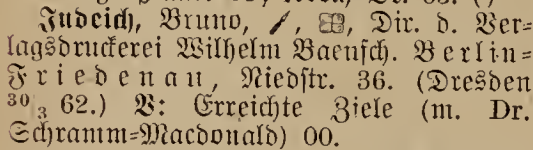 Judeich, Bruno, Dir. d. Ver-
lagsdruckerei Wilhelm Baensch. Berlin-
Friedenau, Niedstr. 36. (Dresden
30/3 62.) V: Erreichte Ziele (m. Dr.
Schramm-Macdonald) 00.